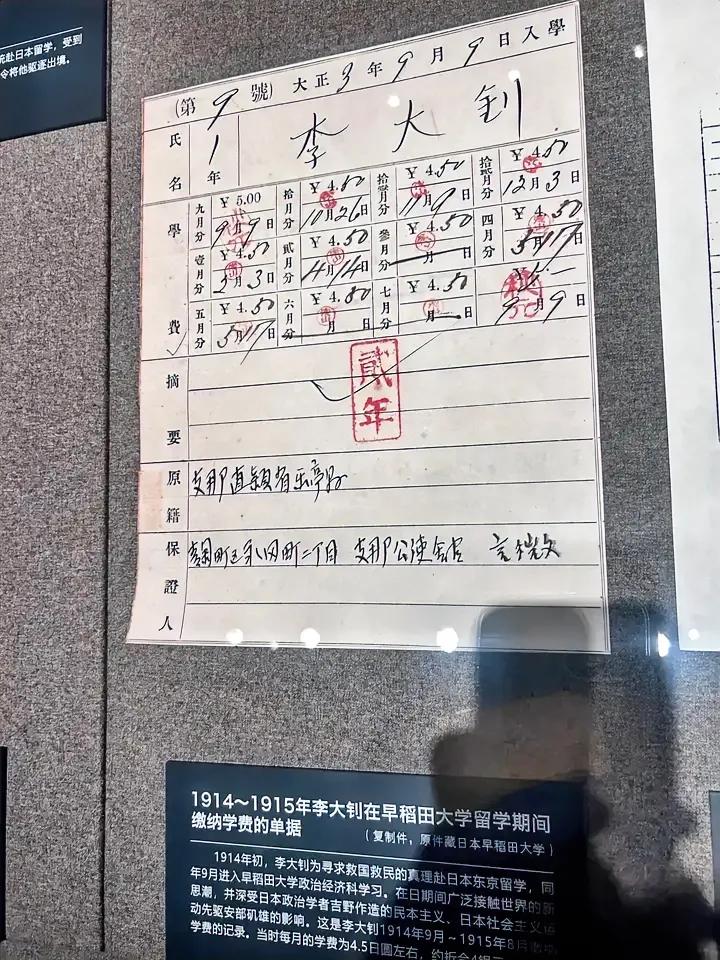 统赴日本留学，受到
令将他驱逐出境。
(第9號) 大正3年9月9日入學
氏名 1年 李大釗
學費
九月分 ¥5.00 9月9日 拾月分 ¥4.50 10月26日 拾壹月分 ¥4.50 11月9日 拾貳月分 ¥4.50 12月3日
壹月分 ¥4.50 3月3日 貳月分 ¥4.50 4月14日 參月分 ¥4.50 月 日 四月分 ¥4.50 5月17日
五月分 ¥4.50 5月17日 六月分 ¥4.50 月 日 七月分 ¥4.50 月 日 9月9日
摘要
貳年
原籍 支那直隸省樂亭
保證人 麹町區永田町二丁目 支那公使館
1914～1915年李大钊在早稻田大学留学期间
缴纳学费的单据
（复制件，原件藏日本早稻田大学）
1914年初，李大钊为寻求救国救民的真理赴日本东京留学，同
年9月进入早稻田大学政治经济科学习。在日期间广泛接触世界的新
思潮，并深受日本政治学者吉野作造的民本主义、日本社会主义运
动先驱安部矶雄的影响。这是李大钊1914年9月～1915年8月缴纳
学费的记录。当时每月的学费为4.5日圆左右，约折合4银元